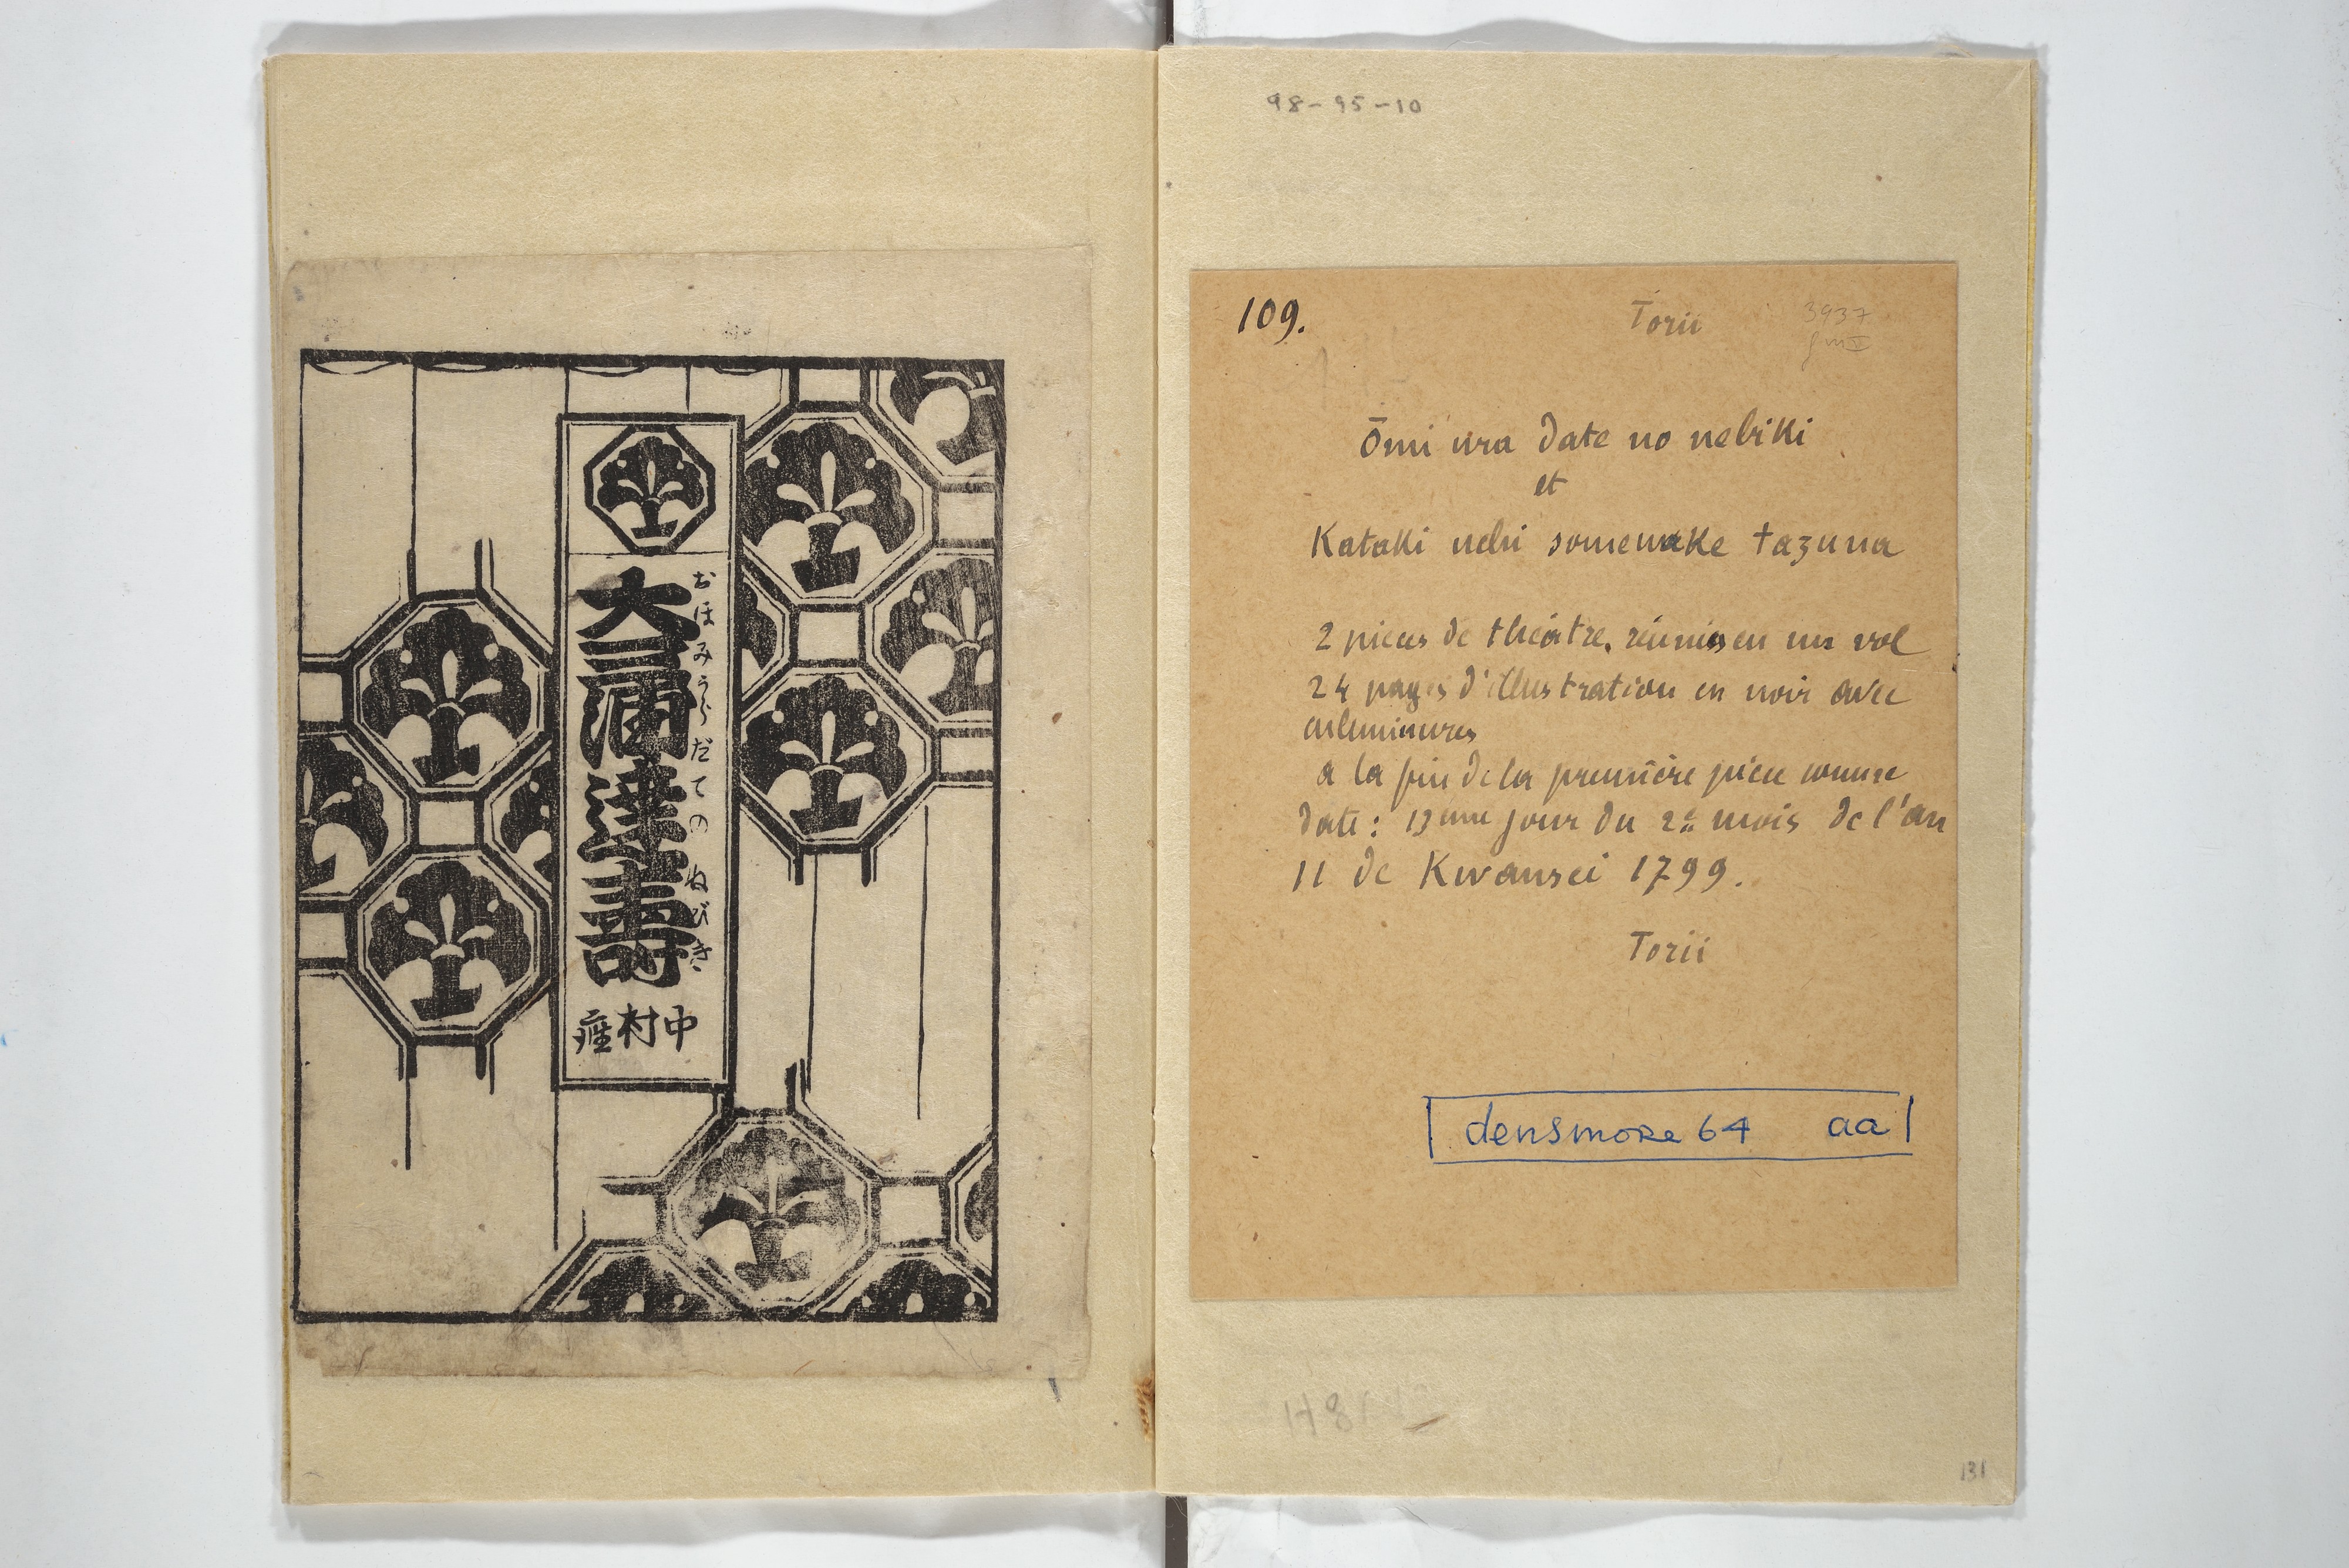 大三浦達壽
おほみうらだてのねびき
中村座
98-95-10
109.
Torii
3937
Ōmi ura date no nebiki
et
Kataki uchi somewake tazuna
2 pieces de théatre, réunies en un vol
24 pages d'illustration en noir avec
enluminures
a la fin de la première pièce comme
date: 13ème jour du 2e mois de l'an
11 de Kwansei 1799.
Torii
densmore 64 aa
131